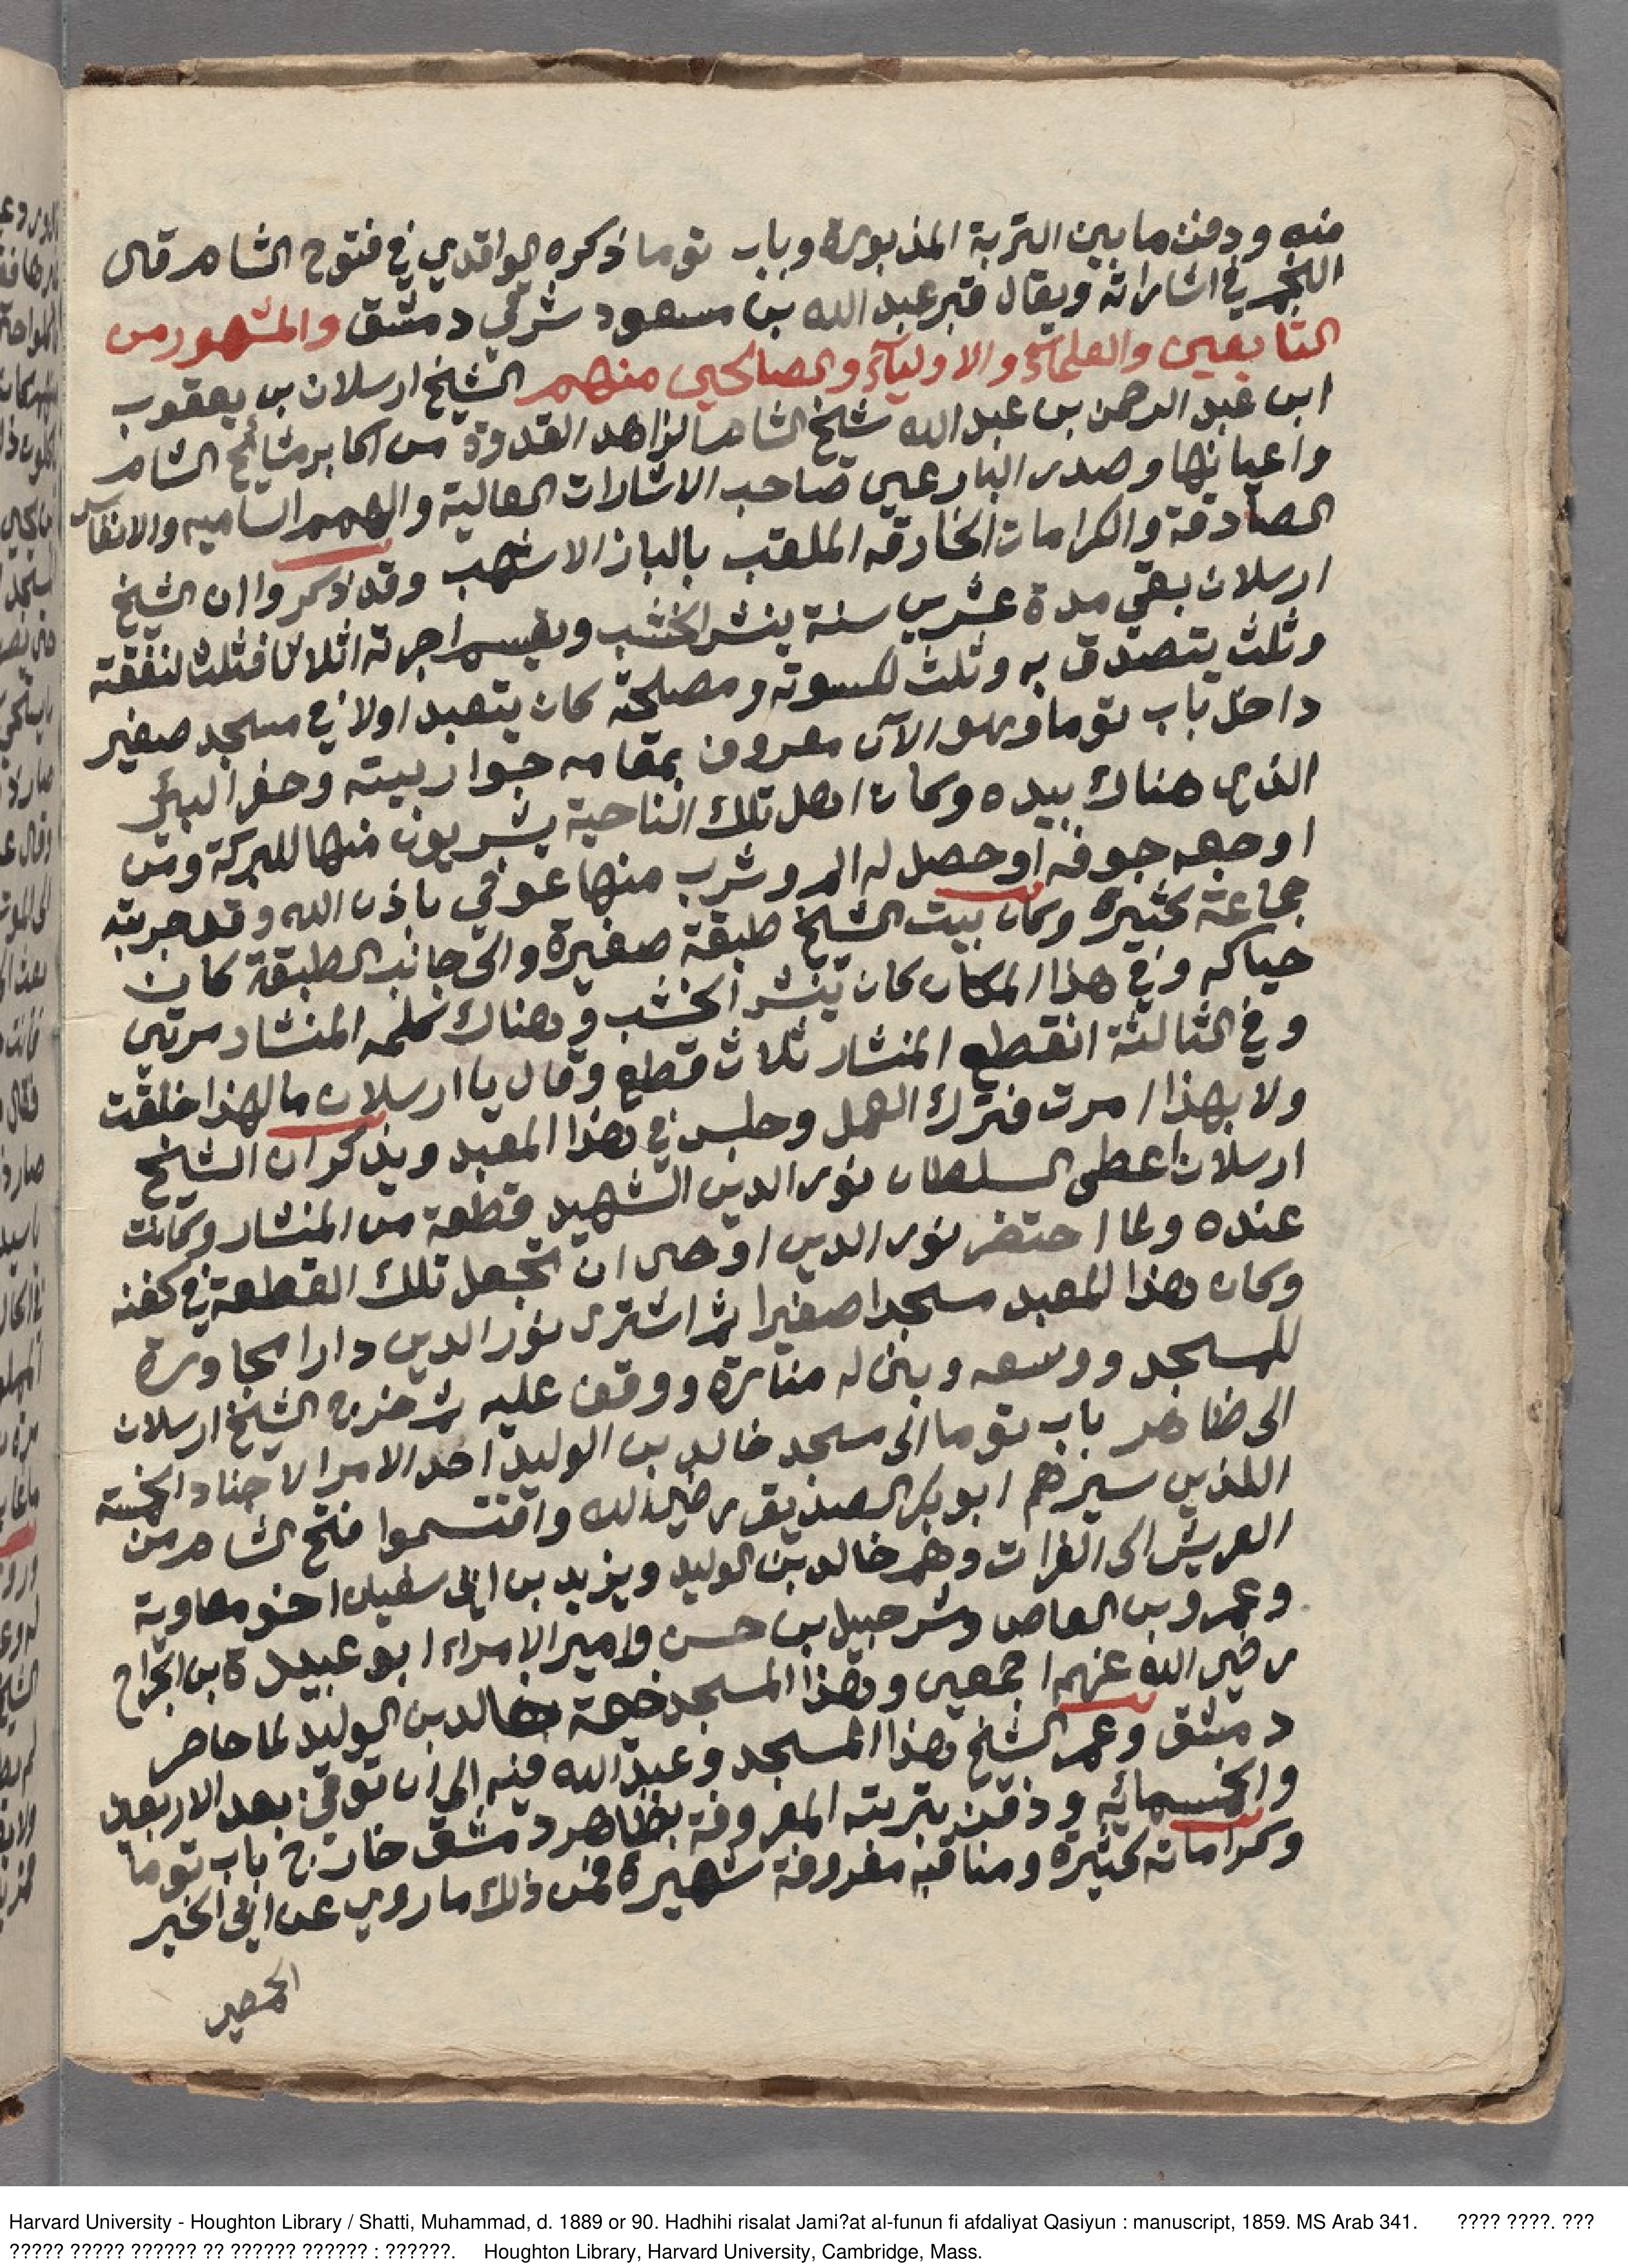 منه ودفن ما بين التربة المذبورة وباب توما ذكره الواقدي في فتوح الشام قال
النجم في اشاراته ويقال قبر عبد الله بن مسعود شرقي دمشق والمشهور من
التابعين والعلماء والاولياء والصالحين منهم الشيخ ارسلان بن يعقوب
ابن عبد الرحمن بن عبد الله شيخ الشام الزاهد القدوة من اكابر مشائخ الشام
واعيانها وصدر البارعين صاحب الاشارات العالية والهمم الساميه والانفاس
الصادقة والكرامات الخارقه الملقب بالباز الاشهب وقد ذكروا ان الشيخ
ارسلان بقي مدة عشرين سنة ينشر الخشب ويقسم اجرته اثلاثا فثلث لنفقته
وثلث يتصدق به وثلث لكسوته ومصلحته كان يتعبد اولا في مسجد صغير
داخل باب توما وهو الآن معروف بمقامه جوار بيته وحفر البئر
الذي هناك بيده وكان اهل تلك الناحية يشربون منها للبركة ومن
اوجعه جوفه او حصل له الم وشرب منها عوفي باذن الله وقد جربته
جماعة كثيرة وكان بيت الشيخ طبقة صغيرة والى جانب الطبقة كان
حياكه وفي هذا المكان كان ينشر الخشب وهناك كلمه المنشار مرتين
وفي الثالثة انقطع المنشار ثلاث قطع وقال يا ارسلان ما لهذا خلقت
ولا بهذا امرت فترك العمل وجلس في هذا المعبد ويذكر ان الشيخ
ارسلان اعطى السلطان نور الدين الشهيد قطعة من المنشار وكانت
عنده ولما احتضر نور الدين اوصى ان تجعل تلك القطعة في كفنه
وكان هذا المعبد مسجدا صغيرا ثم اشترى نور الدين دارا مجاورة
للمسجد ووسعه وبنى له منارة ووقف عليه ثم خرج الشيخ ارسلان
الى ظاهر باب توما الى مسجد خالد بن الوليد احد الامرا الاجناد الخمسة
اللذين سيرهم ابو بكر الصديق رضي الله واقتسموا فتح الشام من
العريش الى الفرات وهم خالد بن الوليد ويزيد بن ابي سفيان اخو معاوية
وعمرو بن العاص وشرحبيل بن حسن وامير الامراء ابو عبيدة بن الجراح
رضي الله عنهم اجمعين وهذا المسجد خيمة خالد بن الوليد لما حاصر
دمشق وعمر الشيخ هذا المسجد وعبد الله فيه الى ان توفى بعد الاربعين
والخمسمائه ودفن بتربته المعروفة بظاهر دمشق خارج باب توما
وكراماته كثيرة ومناقبه معروفة شهيرة فمن ذلك ما روي عن ابي الخير
الحمصي
Harvard University - Houghton Library / Shatti, Muhammad, d. 1889 or 90. Hadhihi risalat Jami?at al-funun fi afdaliyat Qasiyun : manuscript, 1859. MS Arab 341. ???? ????. ???
????? ????? ?????? ?? ?????? ?????? : ??????. Houghton Library, Harvard University, Cambridge, Mass.